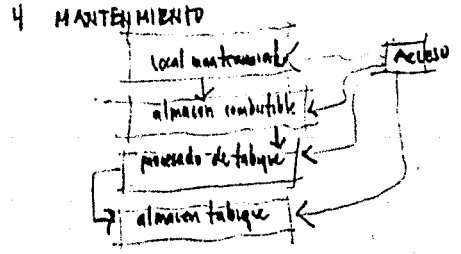 4 MANTENIMIENTO
local mantenimiento
ACCESO
almacen combustible
procesado de tabique
almacen tabique